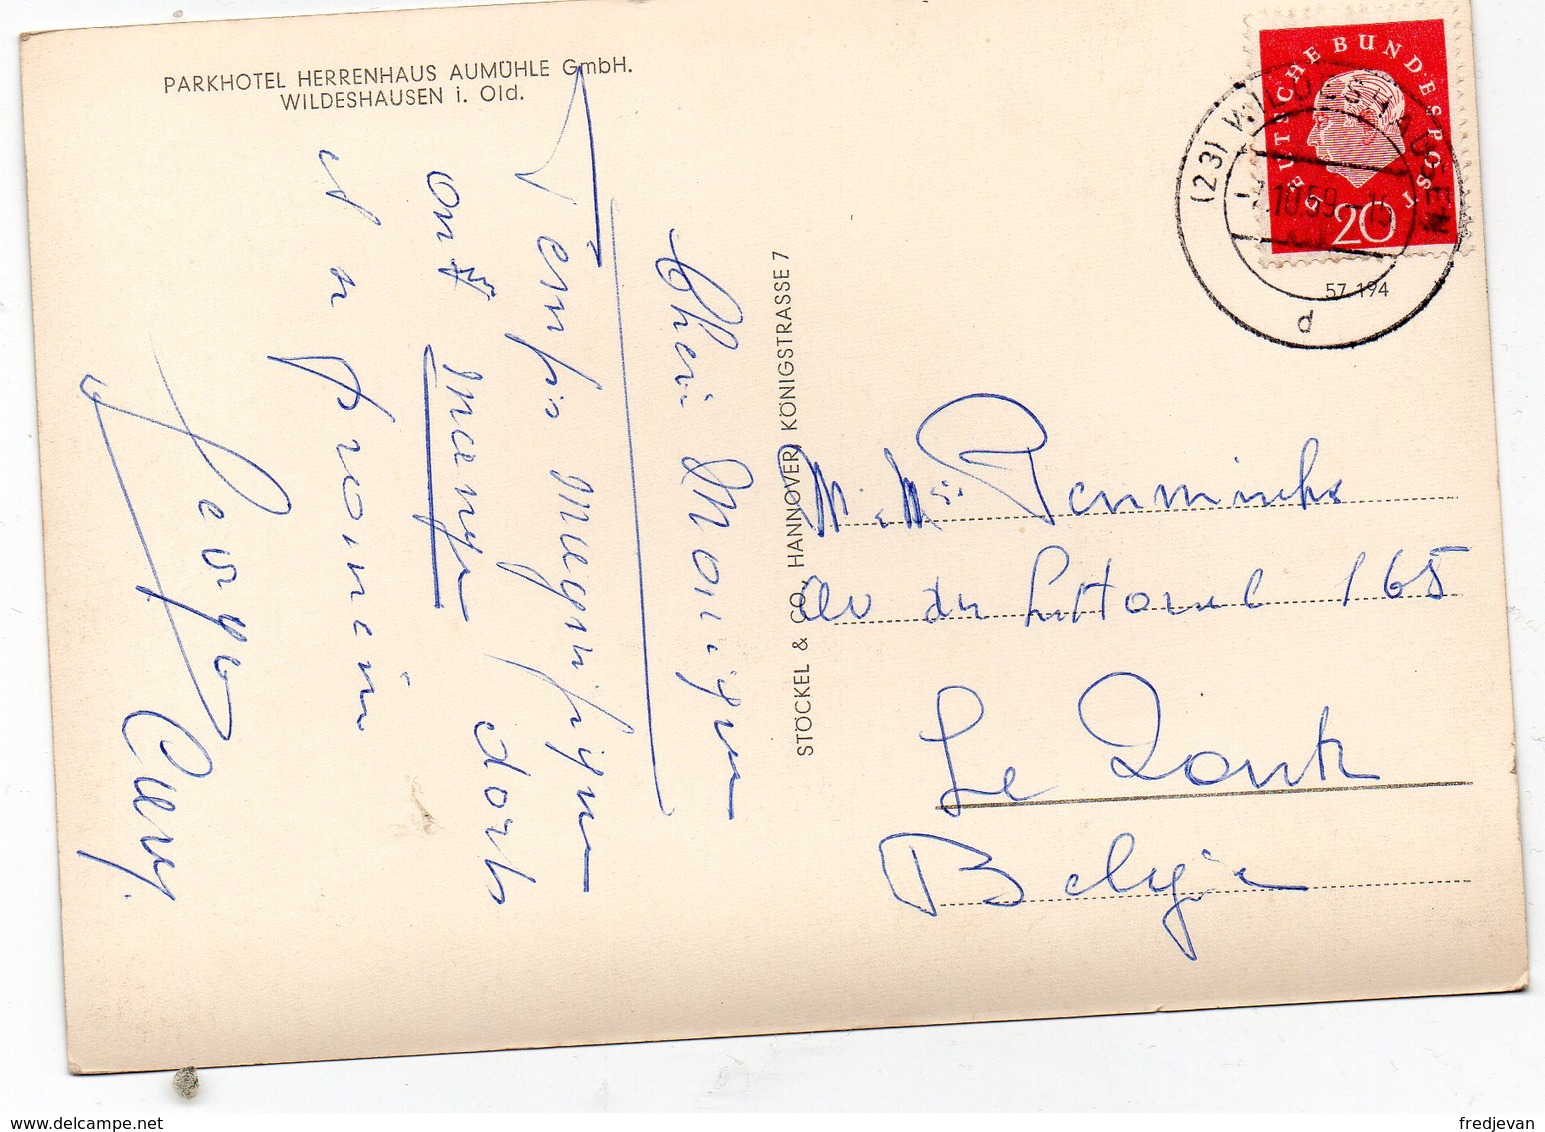 PARKHOTEL HERRENHAUS AUMÜHLE GmbH.
WILDESHAUSEN i. Old.
Temps magnifique
on mange dort
et se promène
Georges
STÖCKEL & CO., HANNOVER, KÖNIGSTRASSE 7
DEUTSCHE BUNDESPOST
20
(23) WILDESHAUSEN
10.59.-15
d
57 194
M. Mme
Av du Littoral 165
Le Zoute
Belgie
www.delcampe.net
fredjevan